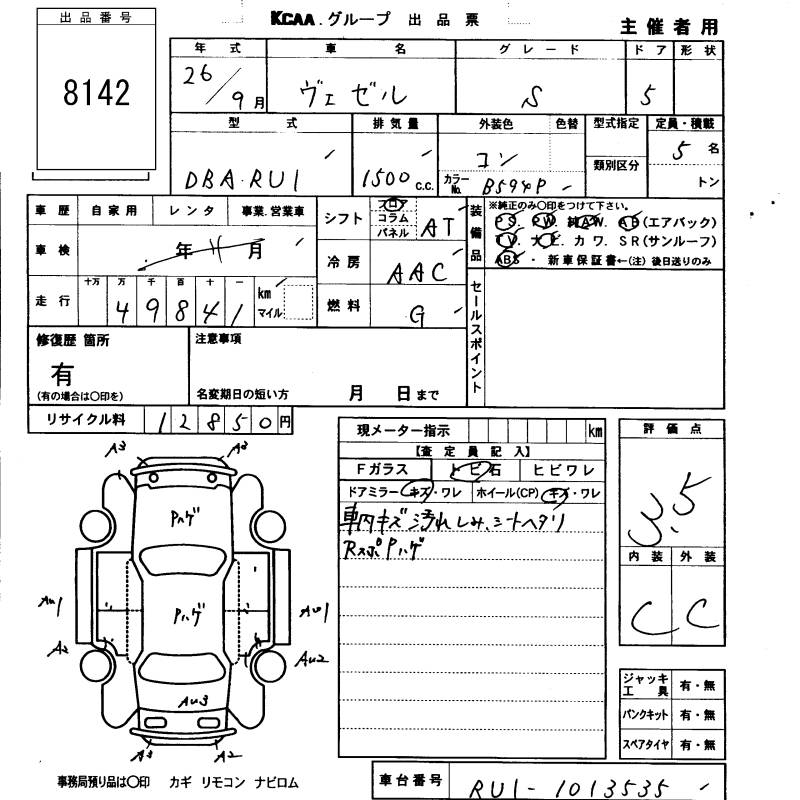 KCAA.グループ 出品票
主催者用
出品番号
8142
年式 車名 グレード ドア 形状
26/9月 ヴェゼル S 5
型式 排気量 外装色 色替 型式指定 定員・積載
DBA-RU1 1500 c.c. コン カラーNo. B594P 類別区分 5名
トン
車歴 自家用 レンタ 事業.営業車
車検 年 月
走行 十万 万 千 百 十 一
49841 km マイル
シフト フロア コラム パネル AT
冷房 AAC
燃料 G
装備品 ※純正のみ〇印をつけて下さい。
PS. PW. 純AW. AB(エアバック)
TV. ナビ. カワ. SR(サンルーフ)
ABS・新車保証書←(注)後日送りのみ
セールスポイント
修復歴 箇所
有
(有の場合は〇印を)
注意事項
名変期日の短い方 月 日まで
リサイクル料 12850円
現メーター指示 km
【査定員記入】
Fガラス トビ石 ヒビワレ
ドアミラー キズ・ワレ ホイール(CP) キズ・ワレ
車内キズ 汚れ しみ、シートヘタリ
Rスポ Pハゲ
評価点
3.5
内装 外装
C C
ジャッキ工具 有・無
パンクキット 有・無
スペアタイヤ 有・無
A3 A3
Pハゲ
Pハゲ
AU1 AU1
A2 AU2
AU3
A3 A2
事務局預り品は〇印 カギ リモコン ナビロム
車台番号 RU1-1013535